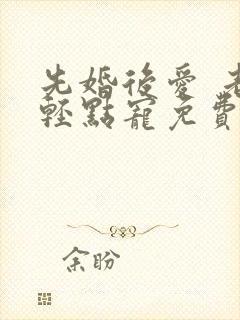 先婚後愛 老
輕點寵免費
余盼